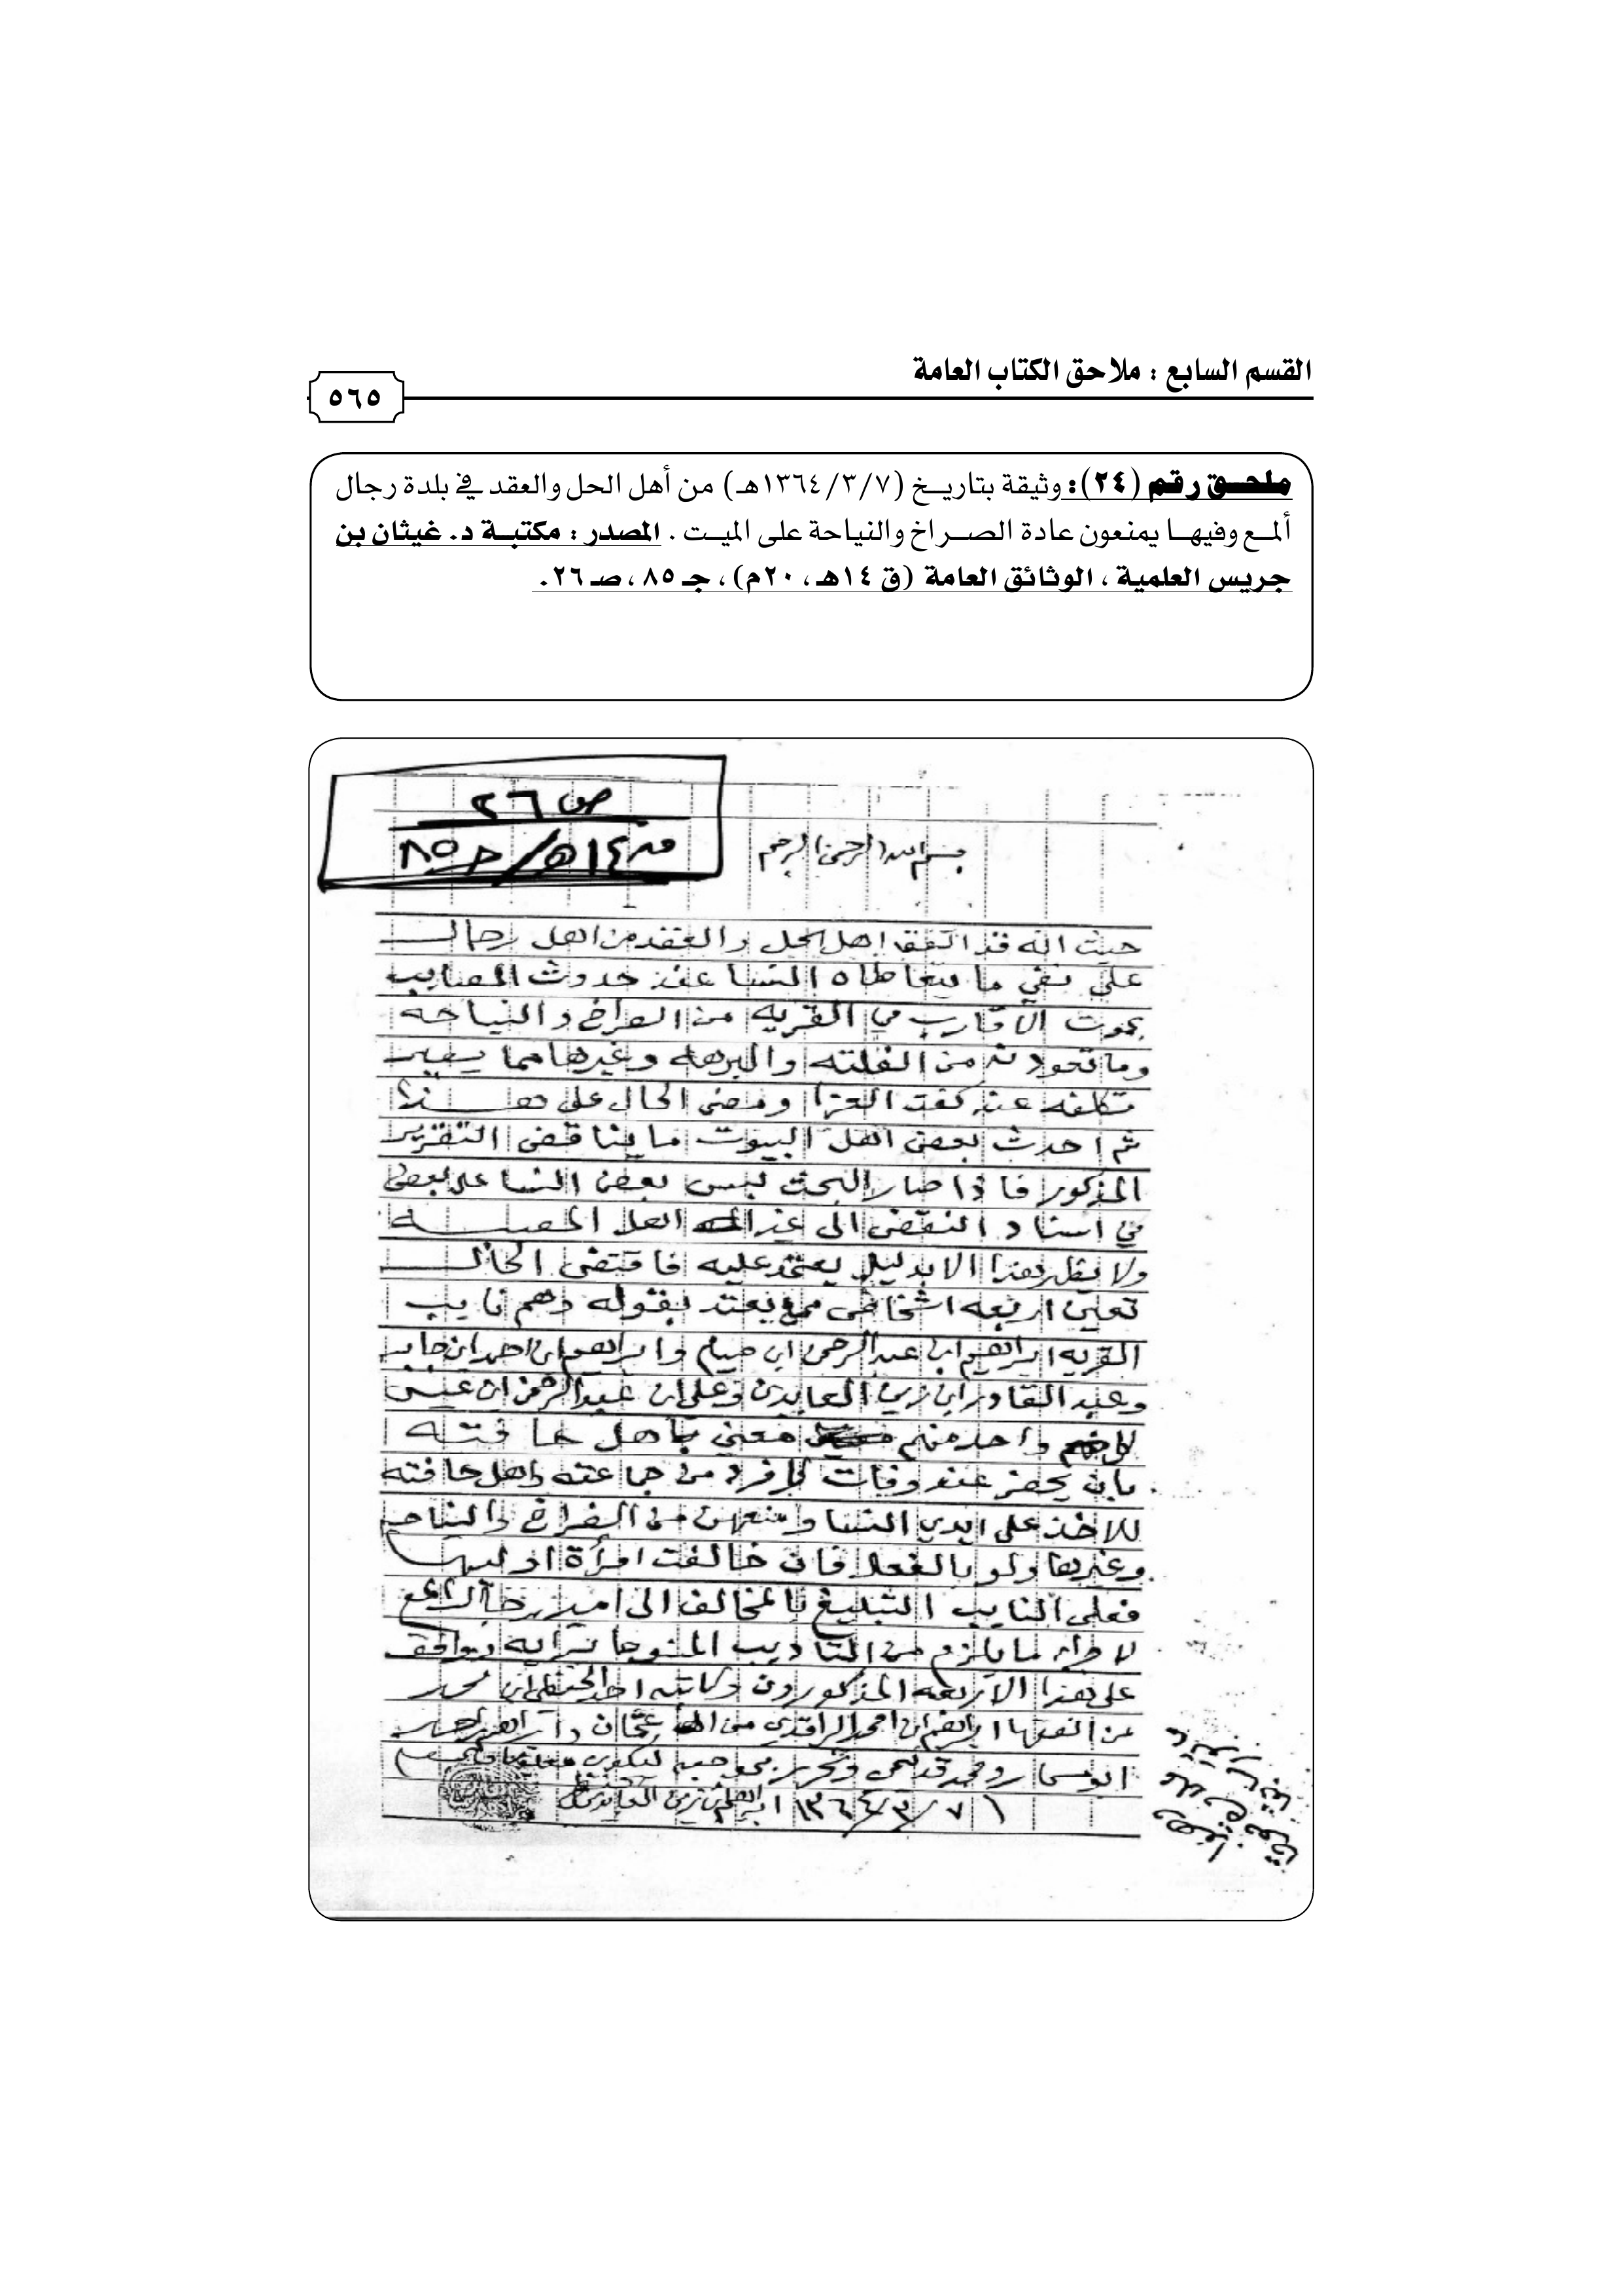 القسم السابع : ملاحق الكتاب العامة
٥٦٥
ملحق رقم (٢٤): وثيقة بتاريخ (١٣٦٤/٣/٧هـ) من أهل الحل والعقد في بلدة رجال
ألمع وفيها يمنعون عادة الصراخ والنياحة على الميت . المصدر : مكتبة د. غيثان بن
جريس العلمية ، الوثائق العامة (ق ١٤هـ ، ٢٠م) ، جـ ٨٥ ، صـ ٢٦.
ص ٢٦
ق ١٤هـ / جـ ٨٥
بسم الله الرحمن الرحيم
حيث انه قد اتفق اهل الحل والعقد من اهل رجال
على نفي ما يتعاطاه النسا عند حدوث المصايب
بموت الاقارب في القريه من الصراخ والنياحه
وما تعودنه من الفلته والبرهه وغيرها مما يصير
تكلفه عند العزا ومضى الحال على هذا
ثم احدث بعض اهل البيوت ما يناقض التقرير
المذكور فاذا صار البحث لبس بعض النسا على بعض
في اسناد النقض الى غير اهل المصيبه
ولا هذا الا بدليل يعتمد عليه فاقتضى الحال
تعين اربعه اشخاص ممن يعتد بقوله وهم نايب
القريه ابراهيم ابن عبدالرحمن ابن صيام وابراهيم ابن احمد ابن
وعبد القادر ابن زين العابدين وعلى ابن عبدالرحمن ابن عيسى
كل واحد منهم معني باهل حافته
بان يحضر عند وفات كل فرد من جماعته واهل حافته
للاخذ على ايدي النسا ومنعهن من الصراخ والنياحه
وغيرها ولو بالفعل فان خالفت امرأة او
فعلى النايب التبليغ بالمخالف الى امير رجال المع
لاجراء ما يلزم من التاديب المنوط برايه وتوافق
على هذا الاربعه المذكورون وكاتبه احمد ابن محمد
عن الفقها ابراهيم ابن محمد الزاقدي من عثمان و
وتحرر بموجبه ليكون معلوما
٧ / ٣ / ١٣٦٤ ابراهيم ابن زين العابدين